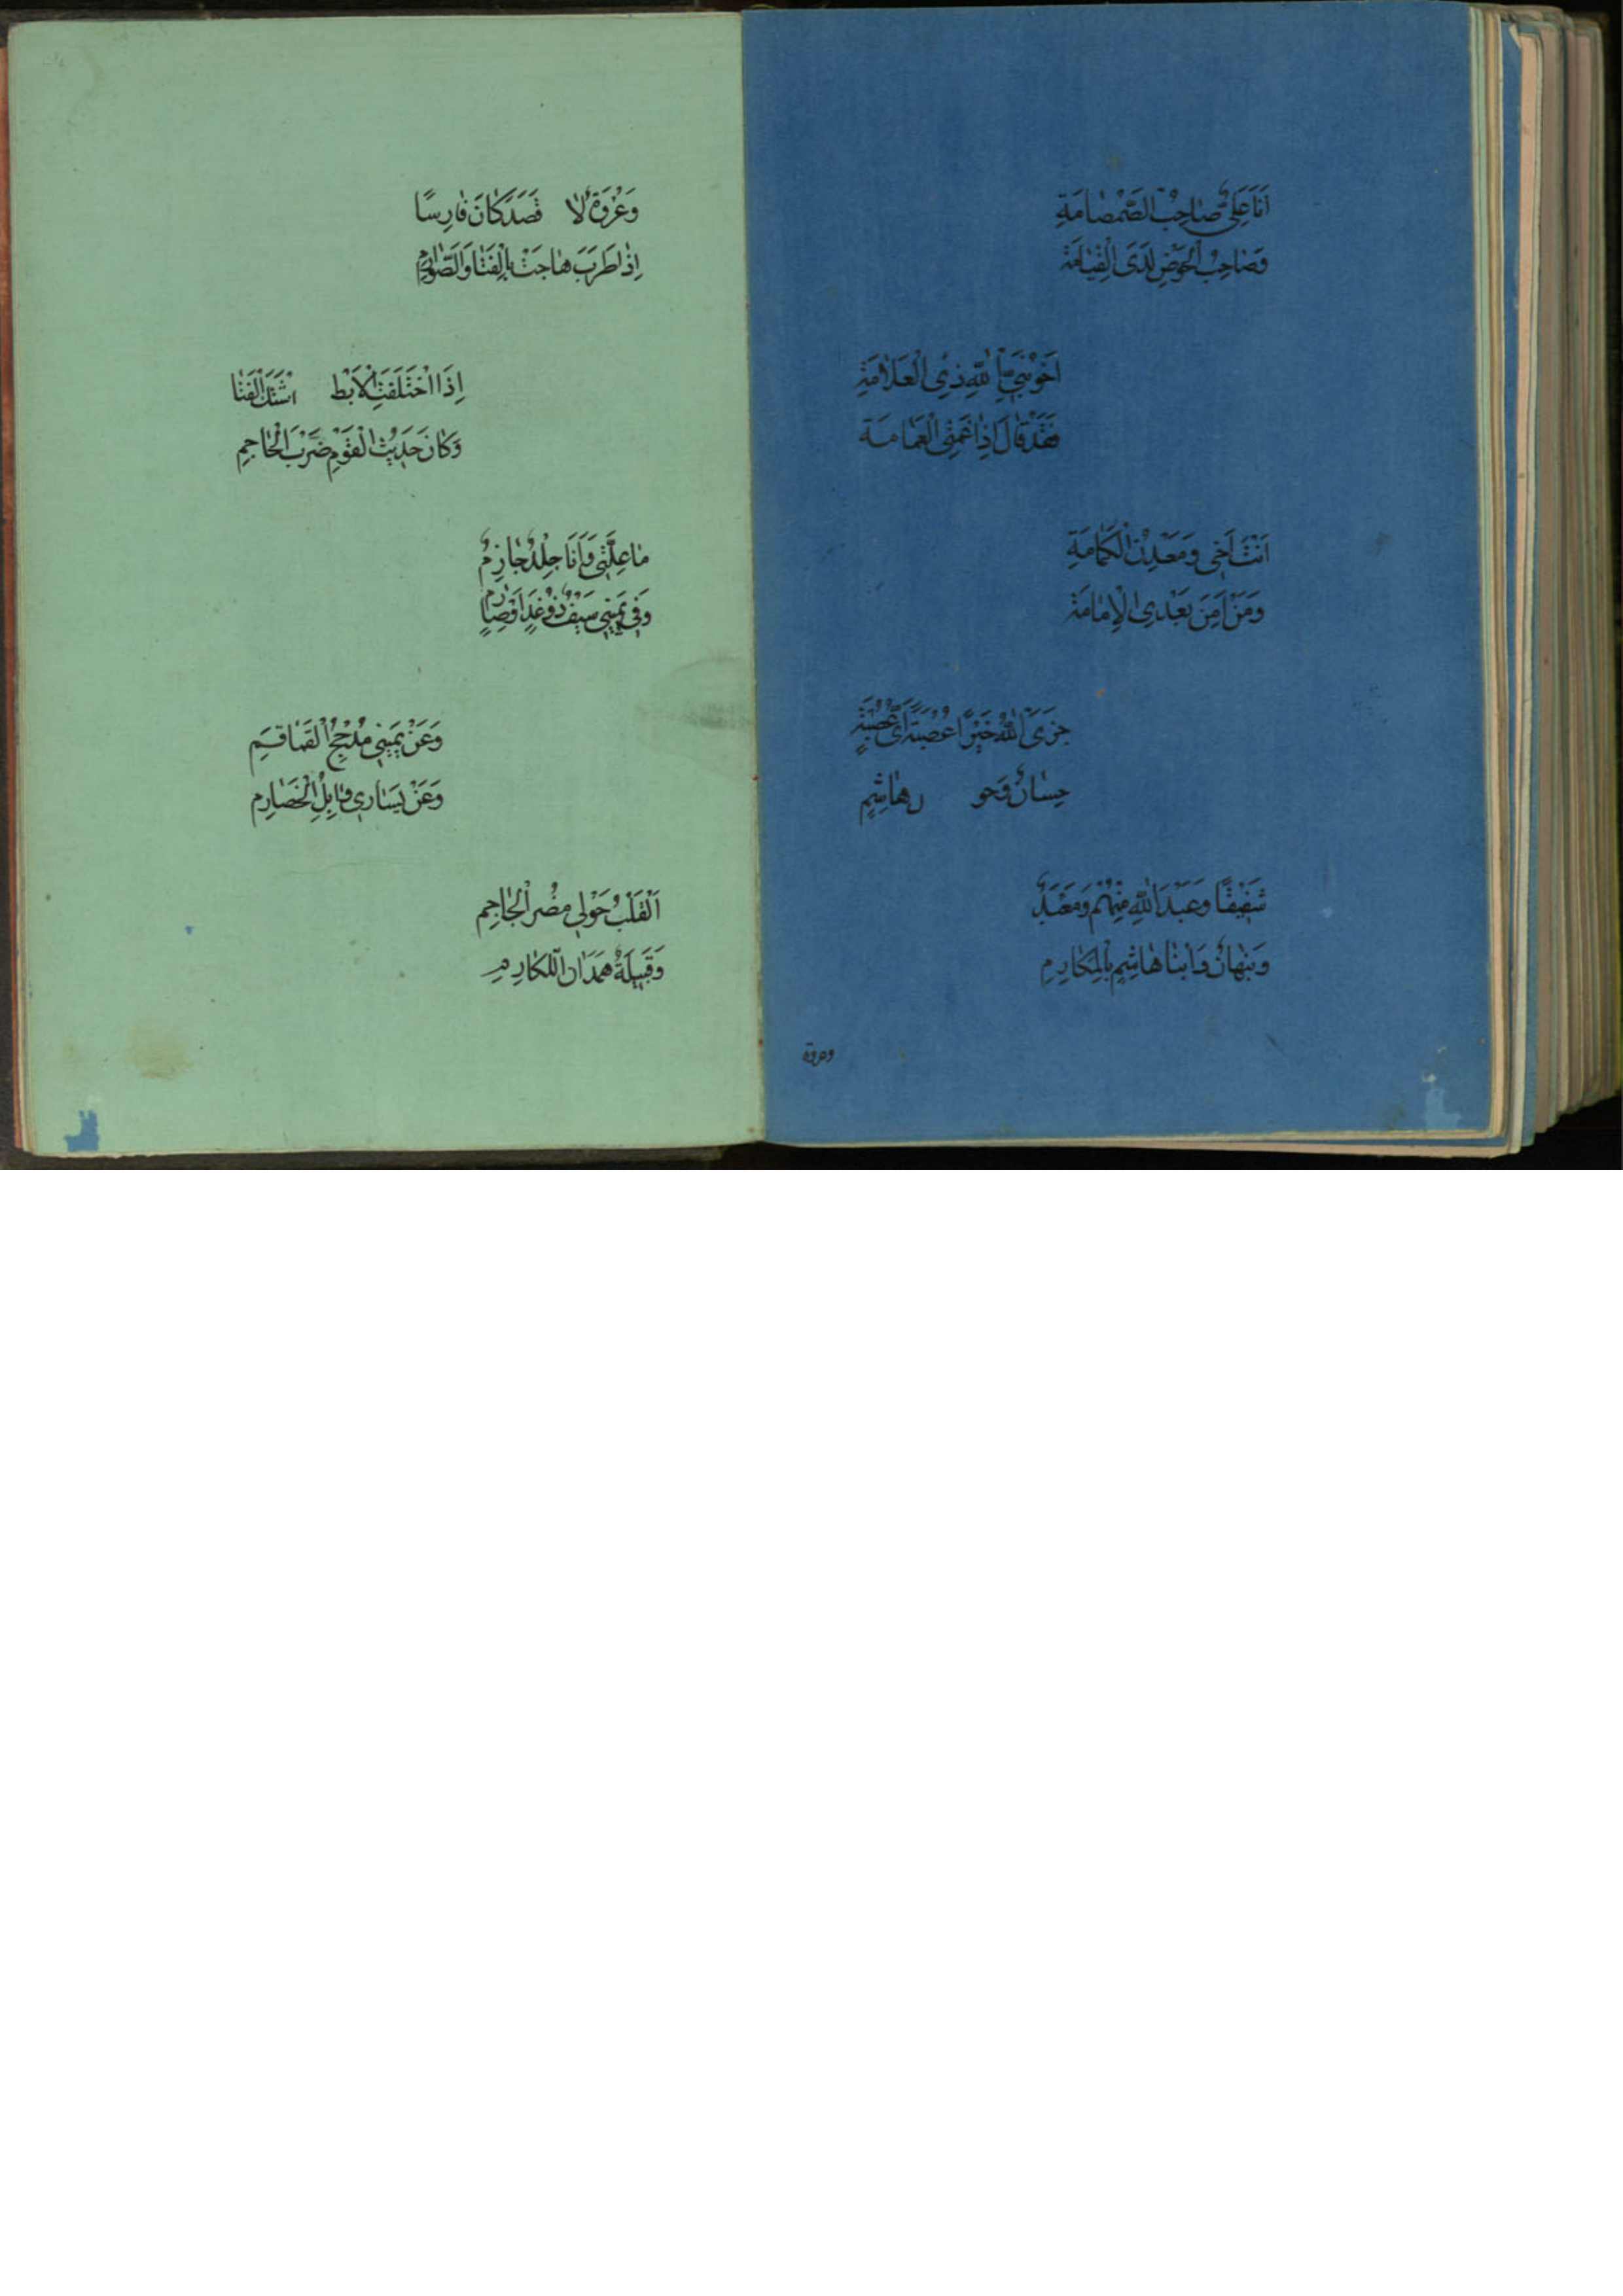 اَنَا عَلِیٌّ صٰاحِبُ الصَّمْصٰامَةِ
وَصٰاحِبُ الْحَوْضِ لَدَی الْقِیٰامَةِ
اَخُو نَبِیِّ اللّٰهِ ذِی الْعَلاٰمَةِ
قَدْ قٰالَ اِذْ عَمَّنِی الْعَمٰامَةَ
اَنْتَ اَخِی وَمَعْدِنُ الْکَرٰامَةِ
وَمَنْ لَهُ مِنْ بَعْدِیَ الْاِمٰامَةُ
جَزَی اللّٰهُ خَیْرًا عُصْبَةً اَیَّ عُصْبَةٍ
حِسٰانُ وُجُو هاشِمٍ
شَفِیْقًا وَعَبْدَ اللّٰهِ مِنْهُمْ وَمَعْبَدٌ
وَنَبْهٰانُ وَابْنٰا هٰاشِمٍ بِالْمَکٰارِمِ
وعروة
وَعُرْوَةُ لاٰ فَصَدَکٰانَ فٰارِسًا
اِذٰا طَرَبَ هٰاجَتْ بِالْقَنٰا وَالصَّوٰارِمِ
اِذَا اخْتَلَفَتِ الْاَبْط الْقَنٰا
وَکٰانَ حَدِیْثُ الْقَوْمِ ضَرْبَ الْجَمٰاجِمِ
مٰا عِلَّتِی وَاَنَا جِلْدٌ حٰازِمٌ
وَفِی یَمِیْنِی سَیْفٌ ذُو
وَعَنْ یَمِیْنِی مَذْحِجُ الْقَمٰاقِمِ
وَعَنْ یَسٰارِی وٰائِلُ الْخَضٰارِمِ
اَلْقَلْبُ حَوْلِی مُضَرُ الْجَمٰاجِمِ
وَقَبِیلَةُ هَمْدٰان الکٰارِمِ